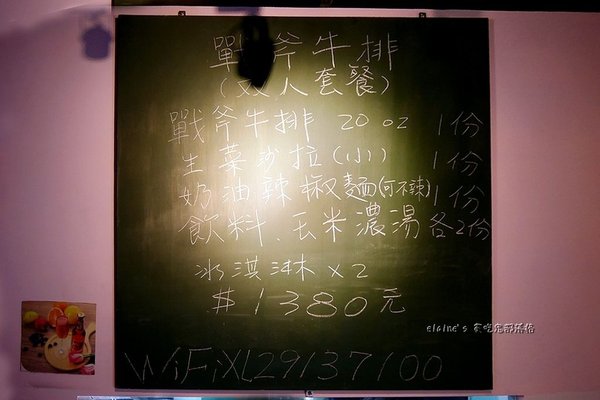 戰斧牛排
(双人套餐)
戰斧牛排 20 oz 1份
生菜沙拉(小) 1份
奶油辣椒麵(可不辣) 1份
飲料、玉米濃湯 各2份
冰淇淋 x 2
$1380元
WiFi XL29137100
elaine's